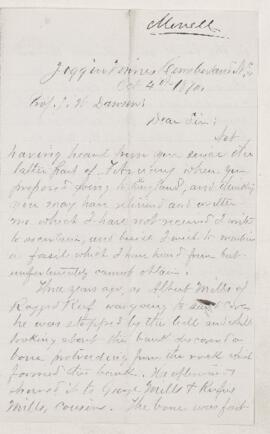 Merrell
Joggins Mines Cumberland N.S.
Oct 4th 1870.
Prof. J. W. Dawson
Dear Sir:
Not
having heard from you since the
latter part of February when you
proposed going to England, and thinking
you may have returned and written
me which I have not received I write
to ascertain, and beside I wish to mention
a fossil which I have heard from but
unfortunately cannot obtain.
Three years ago, as Albert Mills of
Ragged Reef was going to
he was stopped by the tide and while
looking about the bank discovered a
bone protruding from the rock which
formed the bank. He afterwards
showed it to George Mills & Rufus
Mills, cousins. The bone was fast